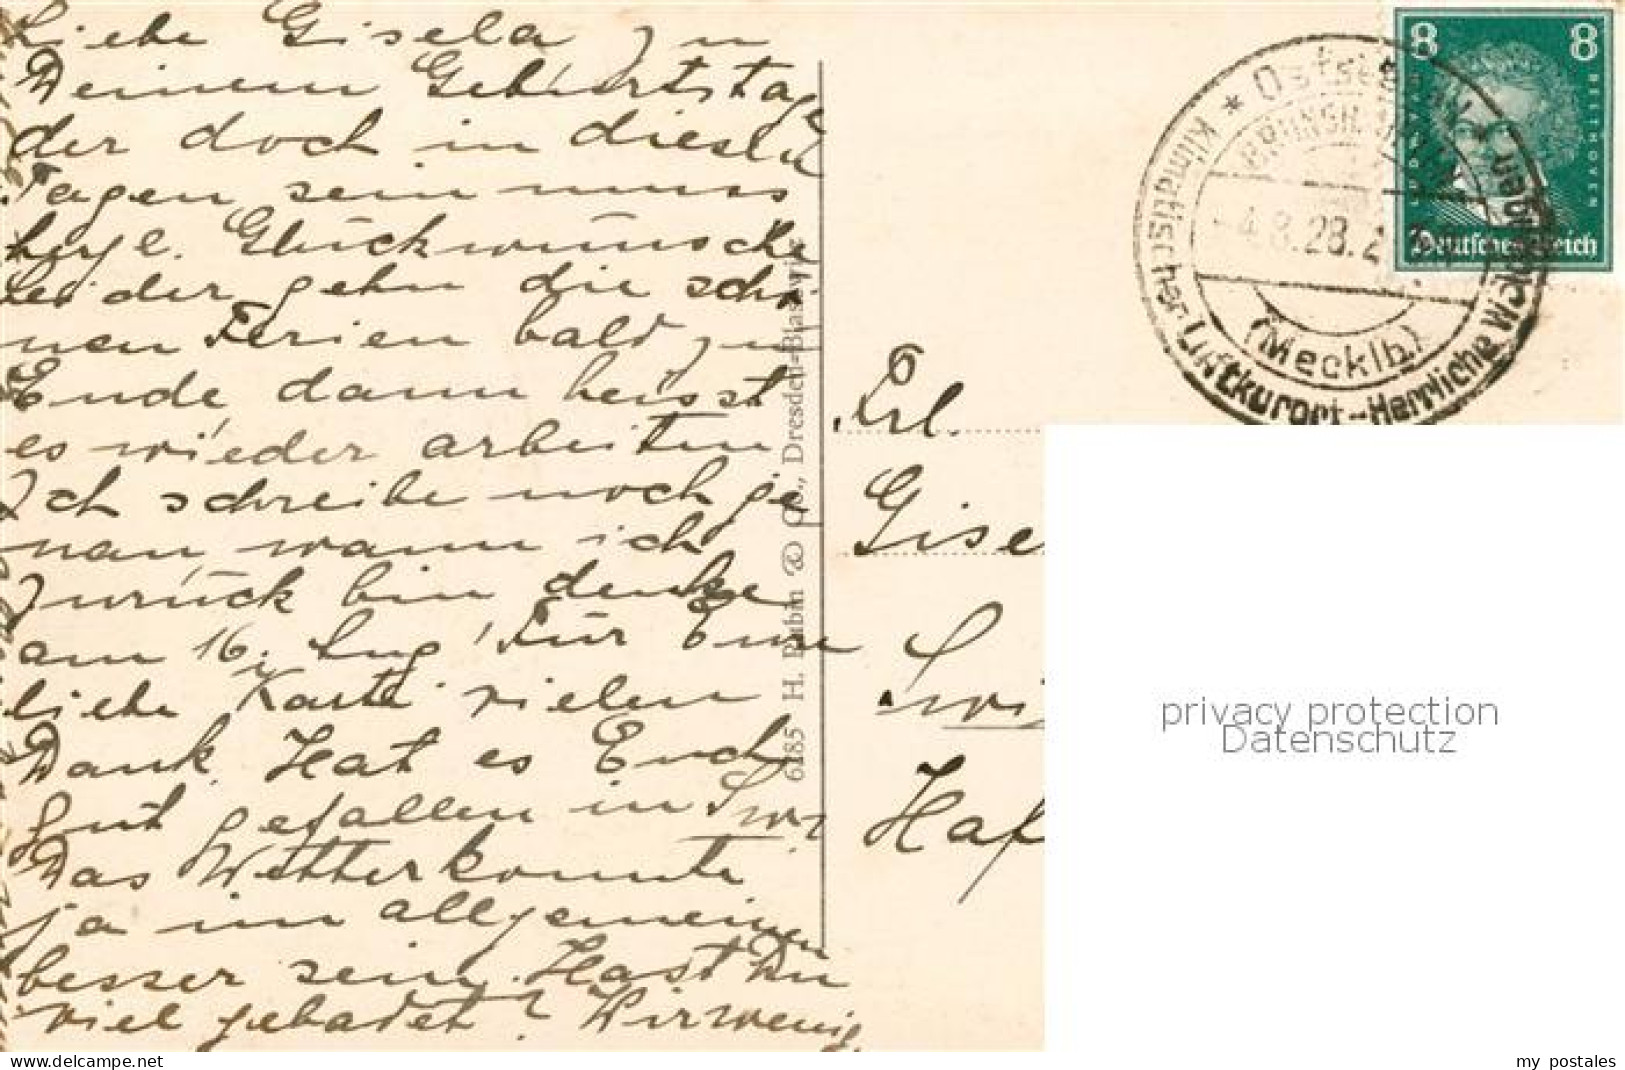 Liebe Gisela zu
Deinem Geburtstage
der doch in diesen
Tagen sein muss
herzl. Glückwünsche
leider gehn die schö-
nen Ferien bald zu
Ende dann heisst
es wieder arbeiten
Ich schreibe noch ge
nau, wann ich
zurück bin denke
am 16. Aug. Für Eure
liebe Karte vielen
Dank. Hat es Euch
gut gefallen in Swi
Das Wetter konnte
ja im allgemeinen
besser sein. Hast Du
viel gebadet? Wir wenig.
6185 H. Rubin & Co., Dresden-Blasewitz
* Ostsee
BRUNSH
4.8.28.
(Mecklb.)
Klimatischer Luftkurort - Herrliche Waldungen
8 8
LUDWIG VAN BEETHOVEN
Deutsches Reich
Frl.
Gise
Swi
Haf
privacy protection
Datenschutz
my postales
www.delcampe.net